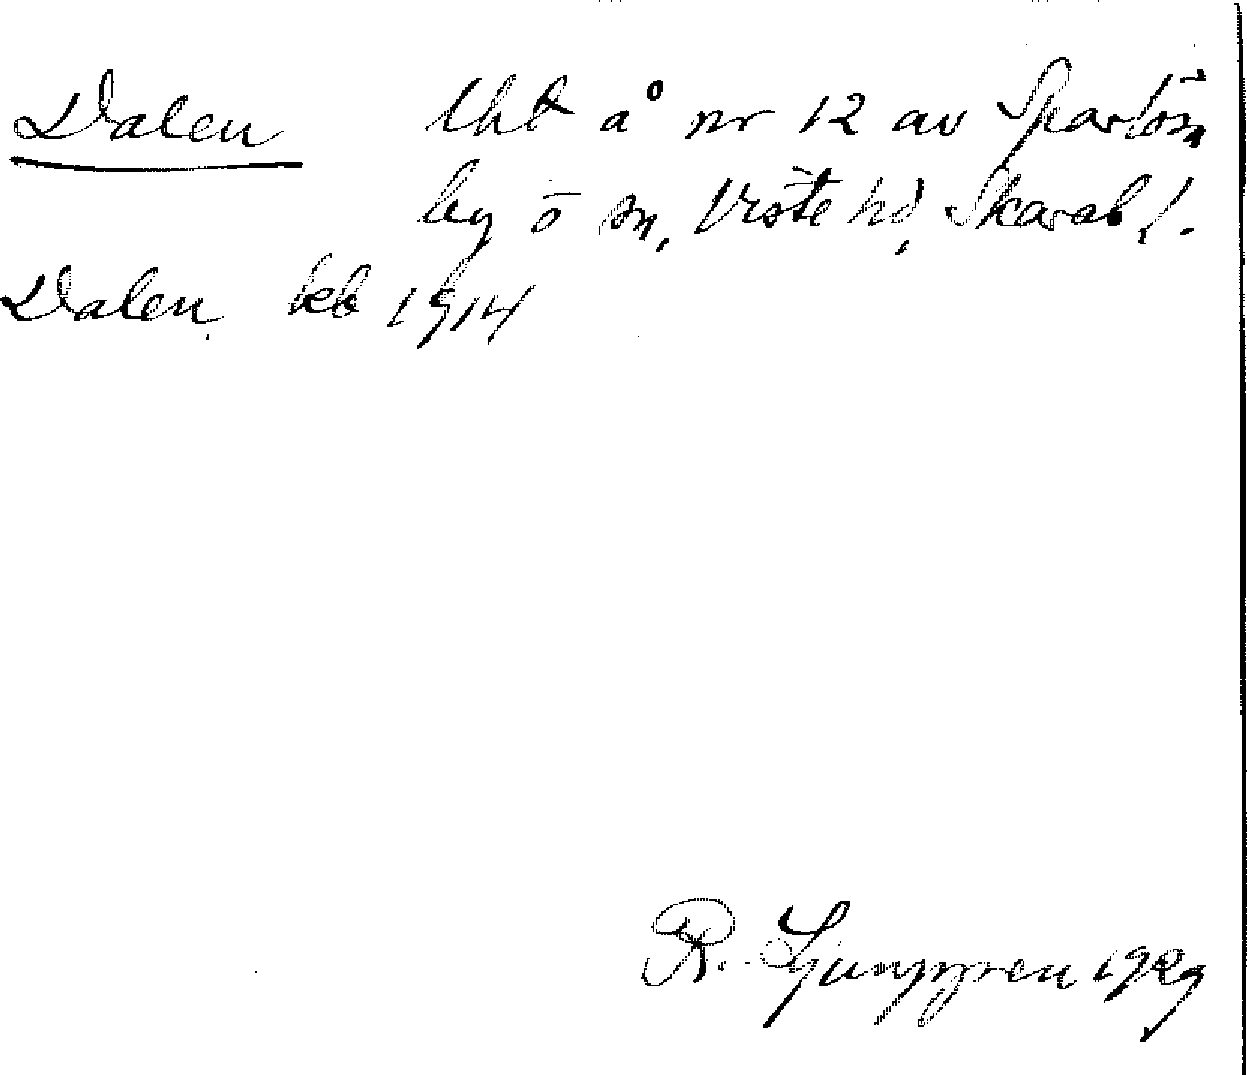 Dalen lht å nr 12 av Sparlösa
by o sn, Viste hd, Skarab. l.
Dalen. keb 1914
R. Ljunggren 1929